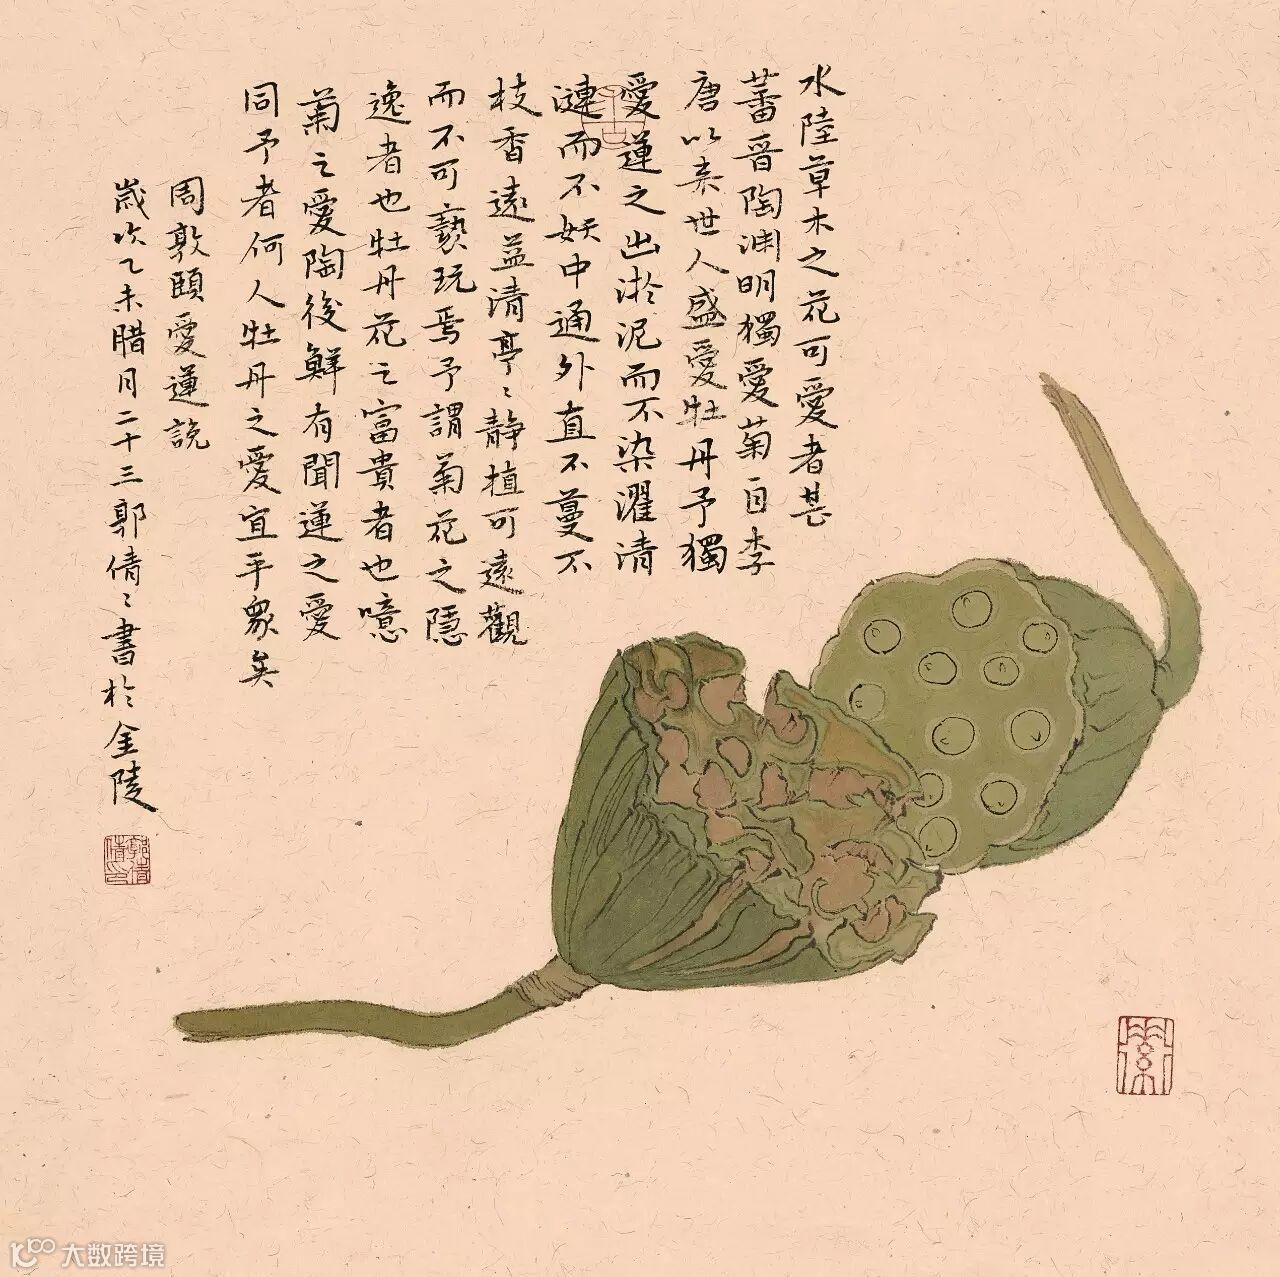 水陸草木之花可愛者甚
蕃晋陶渊明獨愛菊自李
唐以来世人盛愛牡丹予獨
愛蓮之出淤泥而不染濯清
漣而不妖中通外直不蔓不
枝香遠益清亭〻静植可遠觀
而不可褻玩焉予謂菊花之隱
逸者也牡丹花之富貴者也噫
菊之愛陶後鮮有聞蓮之愛
同予者何人牡丹之愛宜乎眾矣
周敦頤愛蓮説
歲次乙未腊月二十三郭倩〻書於金陵
郭倩印
大数跨境